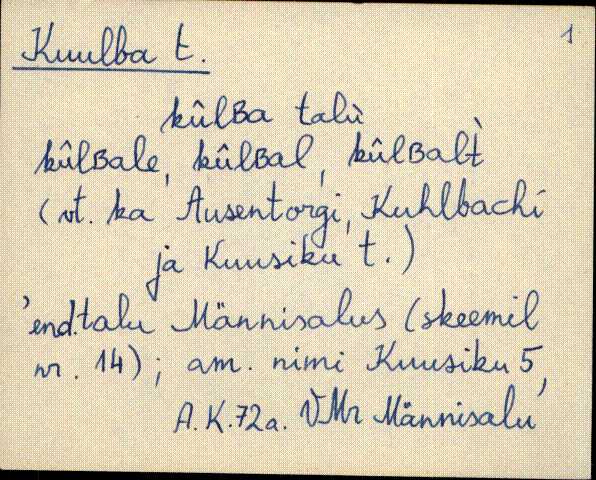 1
Kuulba t.
kûlʙa talù
kûlʙale, kûlʙal, kûlʙalt̀
(vt. ka Ausentorgi, Kuhlbachi
ja Kuusiku t.)
'end.talu Männisalus (skeemil
nr. 14); am. nimi Kuusiku 5,
A.K.72a. VMr Männisalu